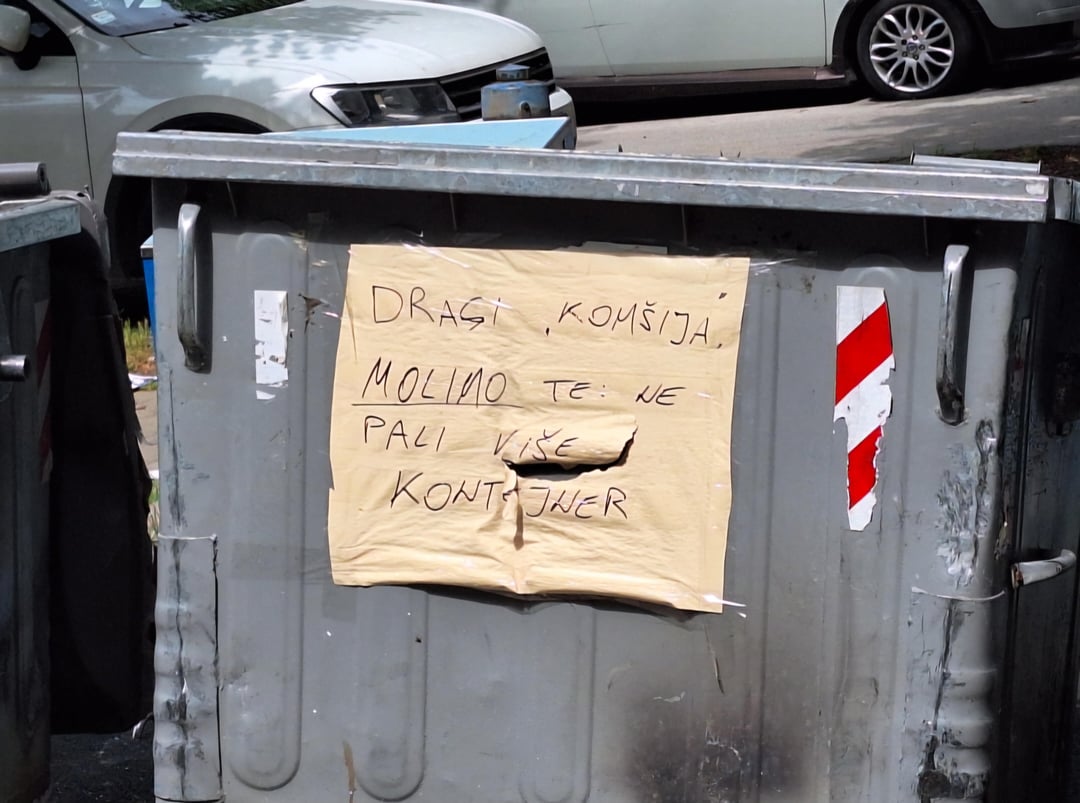 DRAGI „KOMŠIJA”,
MOLIMO TE: NE
PALI VIŠE
KONTEJNER